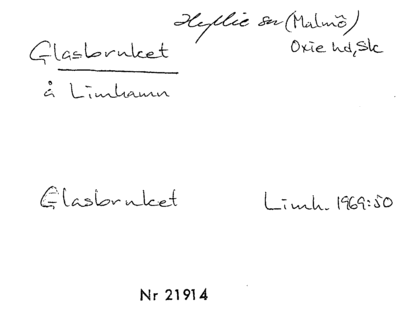 Hyllie sn (Malmö)
Glasbruket
Oxie hd, Sk
å Limhamn
Glasbruket Limh. 1969:50
Nr 21914